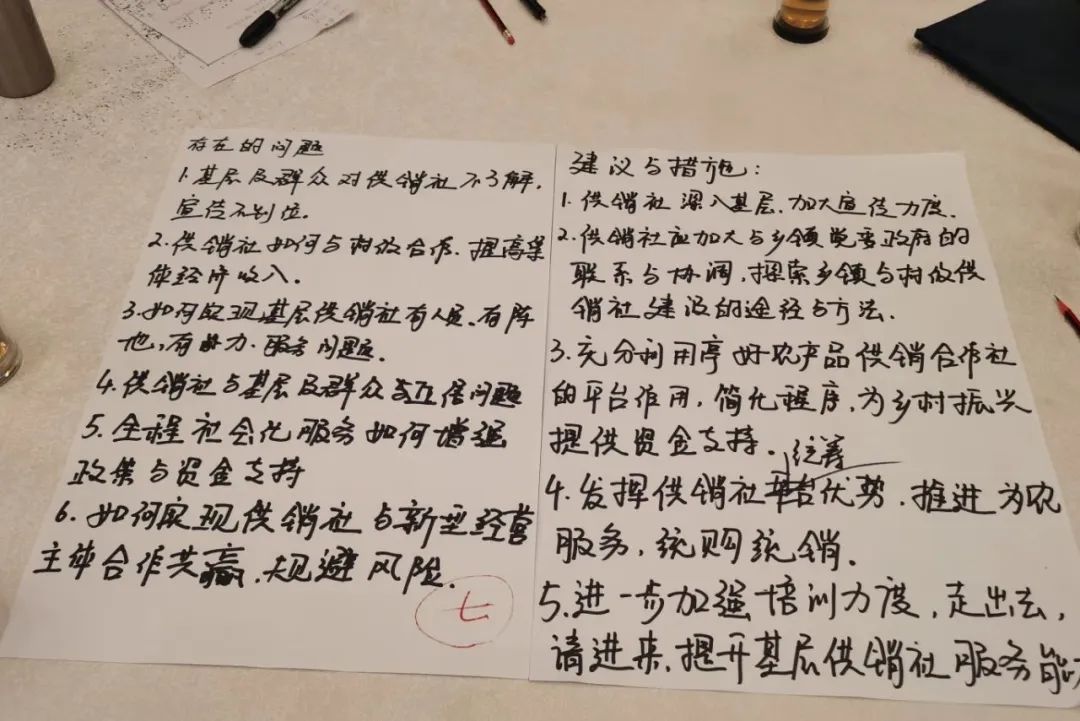 存在的问题
1.基层及群众对供销社不了解,
宣传不到位.
2.供销社如何与村级合作.提高集
体经济收入.
3.如何实现基层供销社有人员.有阵
地,有能力.服务问题.
4.供销社与基层及群众互信问题
5.全程社会化服务如何增强
政策与资金支持
6.如何实现供销社与新型经营
主体合作共赢.规避风险.
七
建议与措施:
1.供销社深入基层.加大宣传力度.
2.供销社应加大与乡镇党委政府的
联系与协调,探索乡镇与村级供
销社建设的途径与方法.
3.充分利用享好农产品供销合作社
的平台作用,简化程序,为乡村振兴
提供资金支持.
统筹
4.发挥供销社优势.推进为农
服务,统购统销.
5.进一步加强培训力度,走出去,
请进来.提升基层供销社服务能